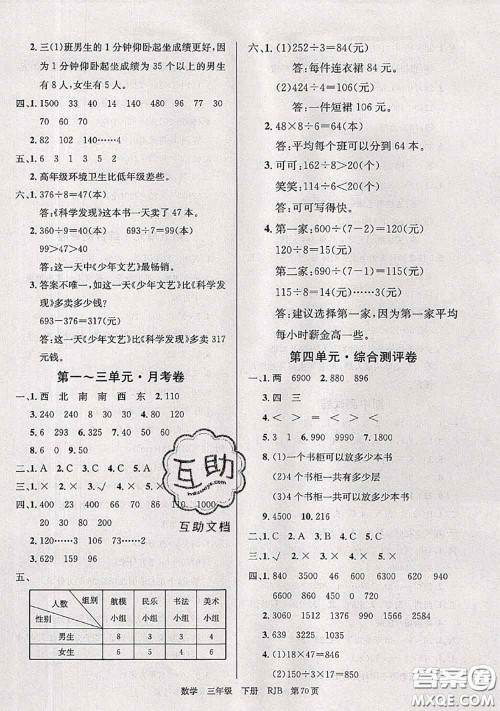 2. 三(1)班男生的1分钟仰卧起坐成绩更好,因
为1分钟仰卧起坐成绩为35个以上的男生
有8人,女生有5人。
四、1. 1500 33 40 14 100 490 30
70 660 70
2. 82 102 140……4
五、1. 6 3 1 3 5 2
2. 高年级环境卫生比低年级差些。
六、1. 376÷8=47(本)
答:《科学发现》这本书一天卖了47本。
2. 360÷9=40(本) 693÷7=99(本)
99>47>40
答:这一天中《少年文艺》最畅销。
3. 答案不唯一,如《少年文艺》比《科学发现》
多卖多少钱?
693-376=317(元)
答:这一天《少年文艺》比《科学发现》多卖317
元钱。
第一~三单元·月考卷
一、1. 西 北 南 南 西 东 2. 110
3. 240 830 8 30 4. > > < =
5. 6 293 6. 329 7. 50 60 8. 40
9. 0 6
二、1. A 2. C 3. C 4. A 5. C
三、1. × 2. × 3. √ 4. × 5. ×
四、1. 160 90 800 66 208 110 1000
31 30 0
2. 36 106 73……2
3. 629 159 96
五、
组别
人数
性别
航模小组 民乐小组 书法小组 美术小组
男生 8 3 4 4
女生 6 5 3 4
六、1. (1)252÷3=84(元)
答:每件连衣裙84元。
(2)424÷4=106(元)
答:一件短裙106元。
2. 48×8÷6=64(本)
答:平均每个班可以分到64本。
3. 可可:162÷8>20(个)
笑笑:114÷6<20(个)
答:可可写得快。
4. 第一家:600÷(7-2)=120(元)
120÷8=15(元)
第二家:690÷(7-1)=115(元)
115÷8=14(元)……3(元)
答:建议选择第一家,因为第一家平均
每小时薪金高一些。
第四单元·综合测评卷
一、1. 两 6900 2. 880 896
3. 四 三
4. < > = < <
5. 360 400
7. 7
8. (1)一个书柜可以放多少本书
(2)4个书柜一共有多少层
(3)4个书柜一共可以放多少本书
9. 4500 10. 216
二、1. C 2. A 3. B 4. A 5. C
三、1. √ 2. × 3. × 4. × 5. ×
2. 1312 1512 1978
3. 3060 1350 3840
4. (1)18×47=846
(2)25×12=300
互助
互助文档
数学 三年级 下册 RJB 第70页
答案圈
MXQE.COM